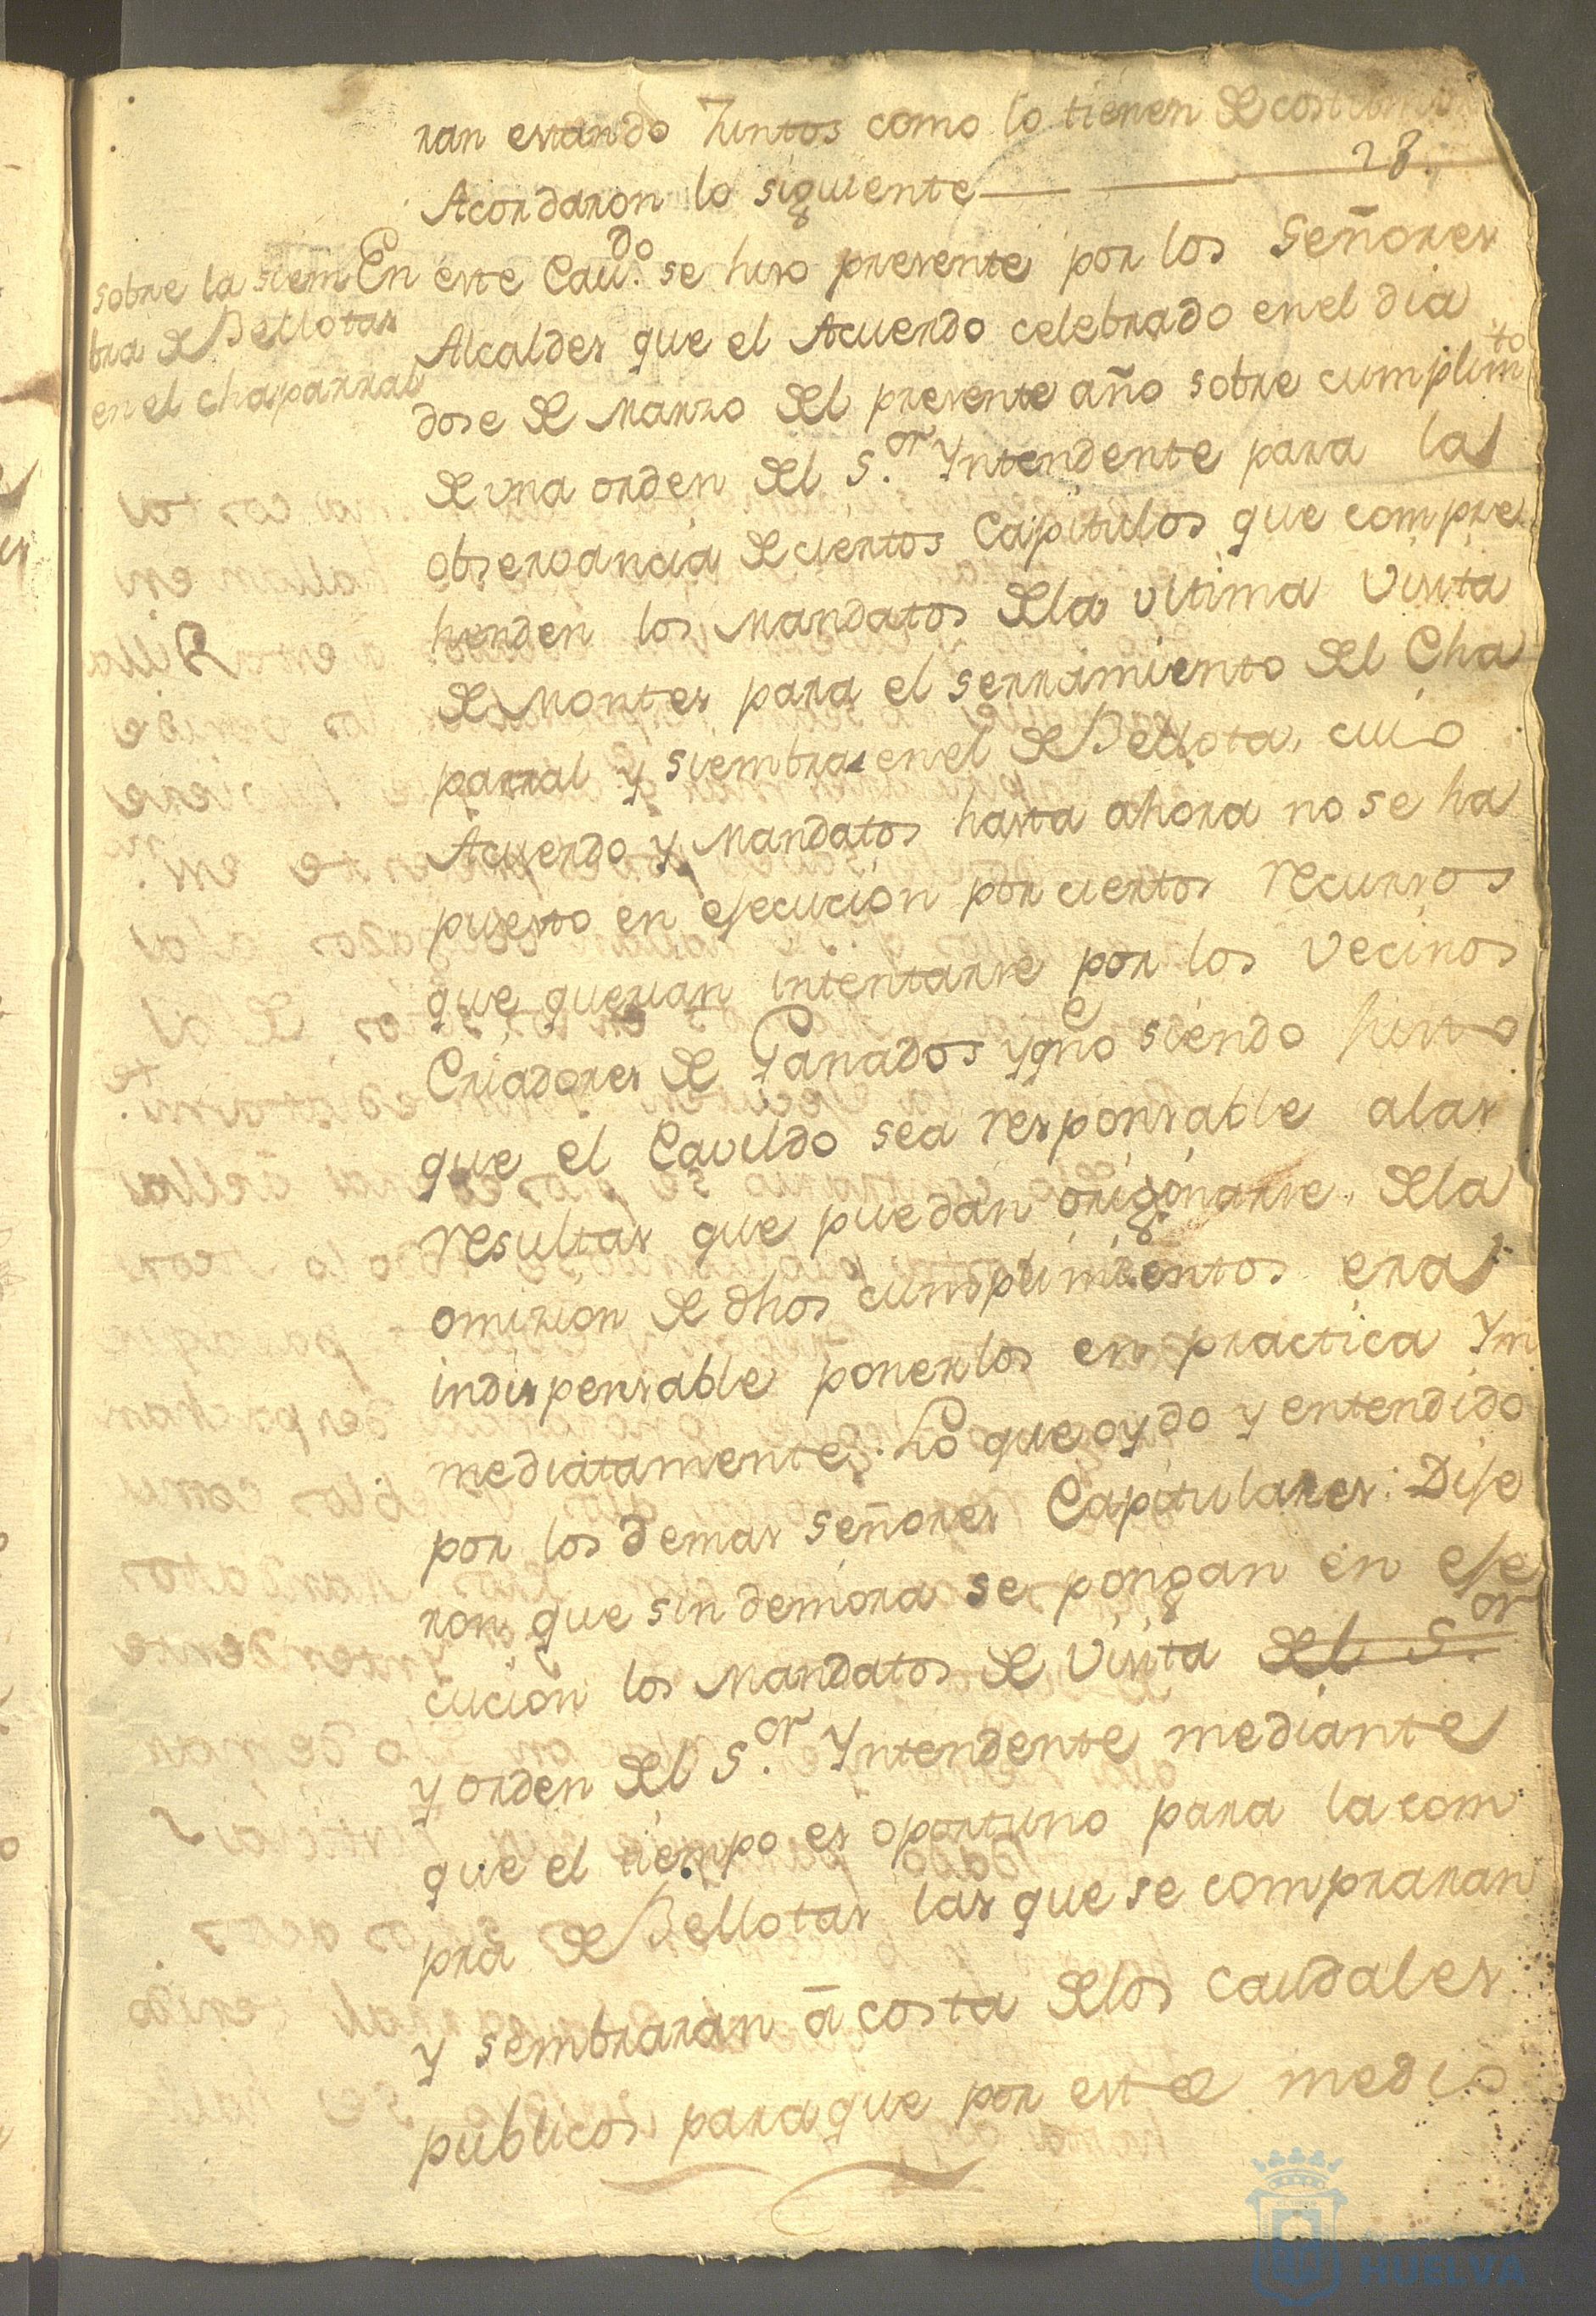 ran estando Juntos como lo tienen de costumbre
28.
Acordaron lo siguiente
sobre la siem
bra de Bellotas
en el chaparral
En este Cav.do se hiso presente por los Señores
Alcaldes que el Acuerdo celebrado en el dia
dose de Marzo del presente año sobre cumplimto
de una orden del S.or Yntendente para la
observancia de ciertos Capitulos que compre
henden los Mandatos de la ultima Visita
de Montes para el serramiento del Cha
parral y siembra en el de Bellota, cuio
Acuerdo y Mandatos hasta ahora no se ha
puesto en ejecución por ciertos recursos
que querian intentarse por los Vecinos
Criadores de Ganados y qe no siendo justo
que el Cavildo sea responsable a las
resultas que puedan originarse de la
omision de dhos cumplimientos era
indispensable ponerlos en practica Yn
mediatamente. Lo que oydo y entendido
por los demas señores Capitulares: Dije
ron que sin demora se pongan en eje
cucion los Mandatos de Visita del S.or
y orden del S.or Yntendente mediante
que el tiempo es oportuno para la com
pra de Bellotas las que se compraran
y sembraran á costa de los caudales
publicos para que por este medio
HUELVA